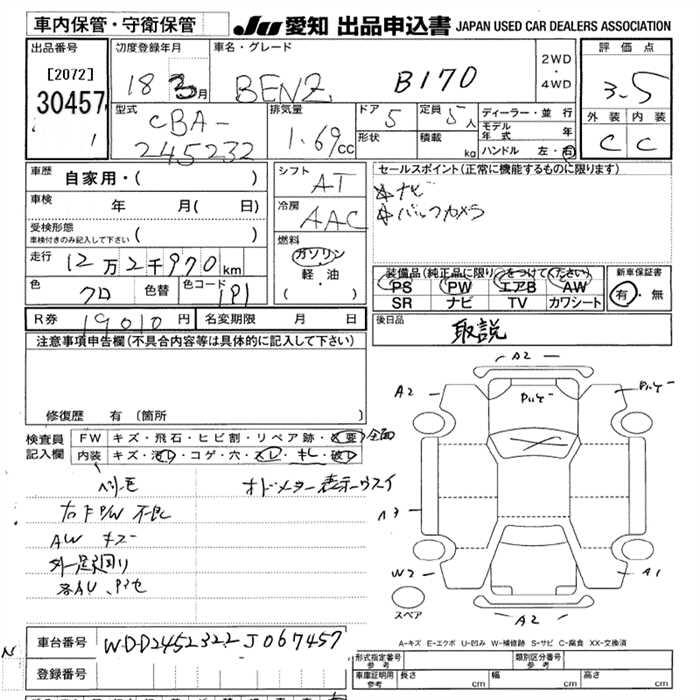 車内保管・守衛保管
JU 愛知 出品申込書 JAPAN USED CAR DEALERS ASSOCIATION
出品番号
[2072]
30457
初度登録年月
18 3月
車名・グレード
BENZ B170
2WD・4WD
評価点
3.5
外装 内装
C C
型式
CBA-
245232
排気量
1.69cc
ドア
5
定員
5人
形状
積載
kg
ディーラー・並行
モデル年式 年
ハンドル 左・右
車歴
自家用・( )
車検
年 月( 日)
受検形態
車検付きのみ記入して下さい ( )
走行
12万2千970km
色
クロ
色替
色コード
191
シフト
AT
冷房
AAC
燃料
ガソリン
・
軽・油
( )
セールスポイント(正常に機能するものに限ります)
☆ナビ
☆バックカメラ
装備品(純正品に限り○をつけてください)
PS PW エアB AW
SR ナビ TV カワシート
新車保証書
有・無
R券
19010円
名変期限 月 日
後日品
取説
注意事項申告欄(不具合内容等は具体的に記入して下さい)
修復歴 有 (箇所 )
検査員
記入欄
FW キズ・飛石・ヒビ割・リペア跡・X要 全面
内装 キズ・汚レ・コゲ・穴・スレ・キレ・破レ
ヘリ毛 オドメーター表示ウスイ
右F P/W 不良
AW キズ
外一足廻り
A2
A2
A2
W2
A1
A2
スペア
A-キズ E-エクボ U-凹み W-補修跡 S-サビ C-腐食 XX-交換済
車台番号
WDD2452322J067457
登録番号
形式指定番号
参考
類別区分番号
参考
車庫証明用
参考
長さ cm
幅 cm
高さ cm